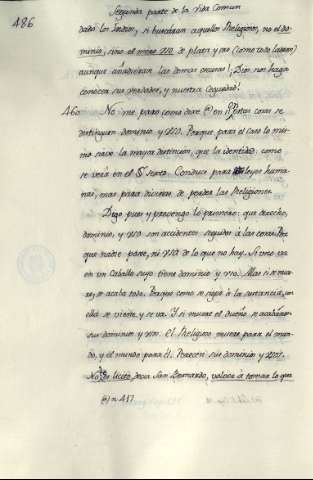 486
Segunda parte de la Vida Comun
dado los Indios, si buscaran aquellos Religiosos, no el do-
minio, sino el mero uso de plata y oro (como todo Laban)
aunque añadieran las demas escusas! Dios nos haga
conocer sus verdades, y nuestra ceguedad!
460 No me paro como dixe (a) en si estas cosas se
distinguen dominio y uso. Porque para el caso lo mis-
mo sirve la mayor distincion, que la identidad: como
se verà en el § sexto. Conduce para leyes huma-
nas, mas para divinas de poseer las Religiones.
Digo pues y prevengo lo primero: que derecho,
dominio, y uso son accidentes seguidos à las cosas. Por-
que nadie parte, ni usa de lo que no hay. Si uno va
en un caballo suyo tiene dominio y uso. Mas si se mue-
re, se acaba todo. Porque como se sigue à la sustancia, con
ella se viene, y se va. Y si muere el dueño, se acabaron
sus dominios y usos. El Religioso muere para el mun-
do, y el mundo para èl. Perecen sus dominios y usos.
No es licito, decia San Bernardo, volver a tomar lo que
(a) n. 457.